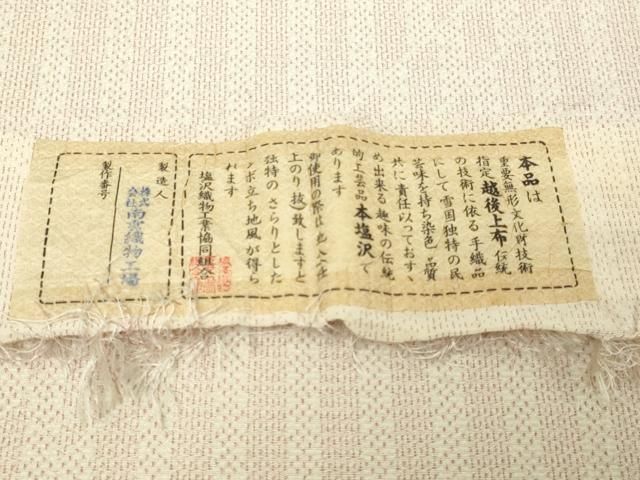 本品は
重要無形文化財技術
指定越後上布伝統
の技術に依る手織品
にして雪国独特の民
芸味を持ち染色品質
共に責任以っておすゝ
め出来る趣味の伝統
的工芸品本塩沢で
あります
御使用の際は
上のり抜)致しますと
独特のさらりとした
シボ立ち地風が得ら
れます
塩沢織物工業協同組合
製造人
株式会社
南雲織物工場
製作番号